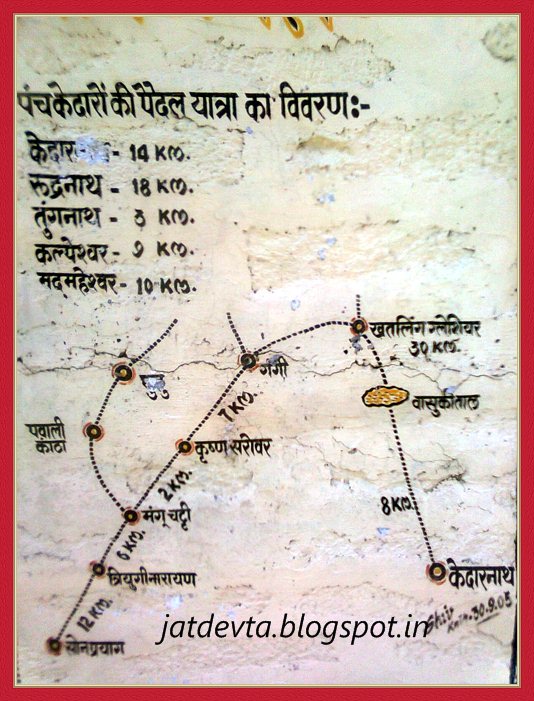 पंचकेदारों की पैदल यात्रा का विवरण:-
केदार - 14 KM.
रूद्रनाथ - 18 KM.
तुंगनाथ - 3 KM.
कल्पेश्वर - 9 KM.
मदमहेश्वर - 10 KM.
खतलिंग ग्लेशियर
30 KM.
गंगी
घुत्तु
वासुकीताल
7 KM.
पवाली
कांठा
कृष्ण सरोवर
2 KM.
8 KM.
मंग् चट्टी
6 KM.
केदारनाथ
त्रियुगीनारायण
12 KM.
30.9.05
jatdevta.blogspot.in
सोनप्रयाग